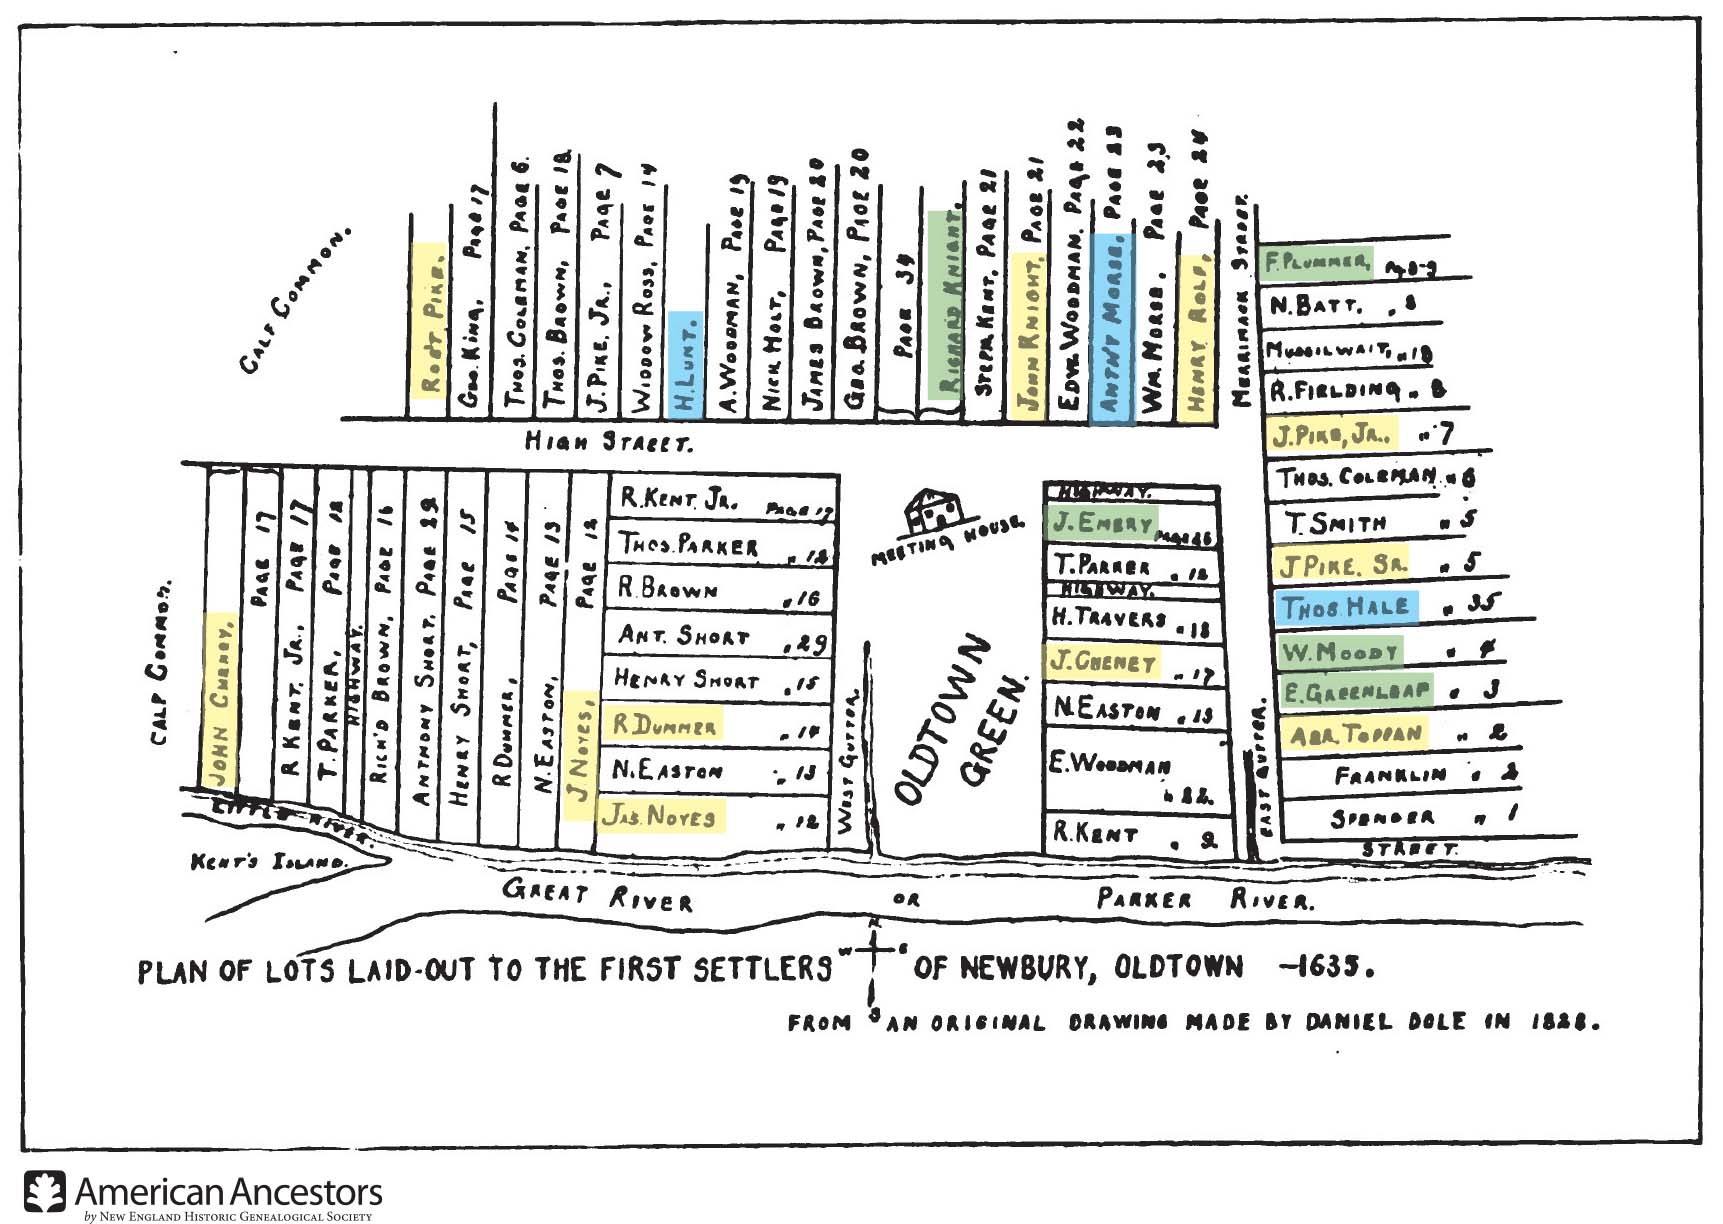 CALF COMMON.
ROBT PIKE.
GEO. KING, PAGE 17
THOS. COLEMAN, PAGE 6.
THOS. BROWN, PAGE 18
J. PIKE, JR., PAGE 7
WIDDOW ROSS, PAGE 14
H. LUNT.
A. WOODMAN, PAGE 19
NICH. HOLT, PAGE 19
JAMES BROWN, PAGE 20
GEO. BROWN, PAGE 20
PAGE 34
RICHARD KNIGHT,
STEPH. KENT, PAGE 21
JOHN KNIGHT, PAGE 21
EDW. WOODMAN. PAGE 22
ANT'NY MORSE, PAGE 23
WM. MORSE, PAGE 23
HENRY ROLF, PAGE 24
MERRIMACK STREET.
F. PLUMMER, Pg 8-9
N. BATT. " 8
" 18
R. FIELDING " 8
J. PIKE, JR., " 7
THOS. COLEMAN " 6
T. SMITH " 5
J PIKE. SR. " 5
THOS. HALE " 35
W. MOODY " 4
E. GREENLEAF " 3
ABR. TOPPAN " 2
FRANKLIN " 2
SPENCER " 1
STREET.
HIGH STREET.
CALF COMMON.
JOHN CHENEY,
PAGE 17
R KENT. JR., PAGE 17
T. PARKER, PAGE 12
HIGHWAY.
RICH'D BROWN, PAGE 16
ANTHONY SHORT, PAGE 29
HENRY SHORT, PAGE 15
R DUMMER, PAGE 14
N. EASTON, PAGE 13
J NOYES, PAGE 12
R. KENT. JR. PAGE 17
THOS. PARKER " 12
R. BROWN " 16
ANT. SHORT " 29
HENRY SHORT " 15
R. DUMMER " 14
N. EASTON " 13
JAS. NOYES " 12
WEST GUTTER.
MEETING HOUSE.
OLDTOWN
GREEN.
HIGHWAY.
J. EMERY PAGE 25
T. PARKER " 12
HIGHWAY.
H. TRAVERS " 18
J. CHENEY " 17
N. EASTON " 13
E. WOODMAN
" 22.
R. KENT " 9
EAST GUTTER.
LITTLE RIVER.
KENT'S ISLAND.
GREAT RIVER OR PARKER RIVER.
N
W E
S
PLAN OF LOTS LAID-OUT TO THE FIRST SETTLERS OF NEWBURY, OLDTOWN –1635.
FROM AN ORIGINAL DRAWING MADE BY DANIEL DOLE IN 1828.
American Ancestors
by NEW ENGLAND HISTORIC GENEALOGICAL SOCIETY